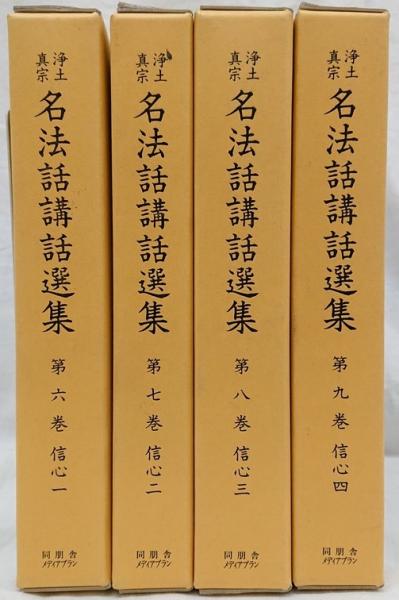 浄土
真宗
名法話講話選集
第六巻 信心一
同朋舎
メディアプラン
浄土
真宗
名法話講話選集
第七巻 信心二
同朋舎
メディアプラン
浄土
真宗
名法話講話選集
第八巻 信心三
同朋舎
メディアプラン
浄土
真宗
名法話講話選集
第九巻 信心四
同朋舎
メディアプラン